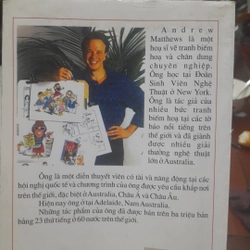 Andrew
Matthews là một
hoạ sĩ vẽ tranh biếm
hoạ và chân dung
chuyên nghiệp.
Ông học tại Đoàn
Sinh Viên Nghệ
Thuật ở New York.
Ông là tác giả của
nhiều bức tranh
biếm hoạ tại các tờ
báo nổi tiếng trên
thế giới và đã giành
được nhiều giải
thưởng nghệ thuật
lớn ở Australia.
Ông là một diễn thuyết viên có tài và năng động tại các
hội nghị quốc tế và chương trình của ông được yêu cầu khắp nơi
trên thế giới, đặc biệt ở Australia, Châu Á và Châu Âu.
Hiện nay ông ở tại Adelaide, Nam Australia.
Những tác phẩm của ông đã được bán trên ba triệu bản
bằng 23 thứ tiếng ở 60 nước trên thế giới.